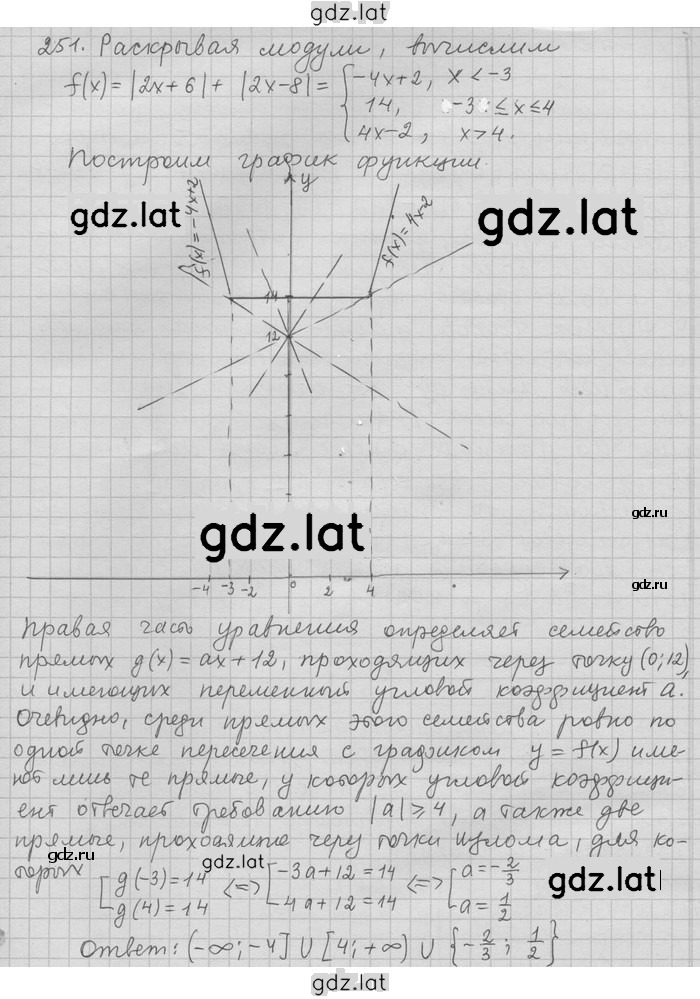 gdz.lat
251. Раскрывая модули, вычислим
f(x) = |2x+6| + |2x-8| = { -4x+2, x < -3
14, -3 ≤ x ≤ 4
4x-2, x > 4.
Построим график функции.
y
gdz.lat
f(x) = -4x+2
f(x) = 4x-2
gdz.lat
14
12
gdz.lat
gdz.ru
gdz.ru
-4 -3 -2 0 2 4
Правая часть уравнения определяет семейство
прямых g(x) = ax + 12, проходящих через точку (0; 12),
и имеющих переменный угловой коэффициент a.
Очевидно, среди прямых этого семейства ровно по
одной точке пересечения с графиком y = f(x) име-
ют лишь те прямые, у которых угловой коэффици-
ент отвечает требованию |a| ≥ 4, а также две
прямые, проходящие через точки излома, для ко-
торых [ g(-3) = 14 <=> [ -3a + 12 = 14 <=> [ a = -2/3
g(4) = 14 4a + 12 = 14 a = 1/2
gdz.lat
gdz.lat
gdz.lat
Ответ: (-∞; -4] ∪ [4; +∞) ∪ {-2/3; 1/2}
gdz.lat